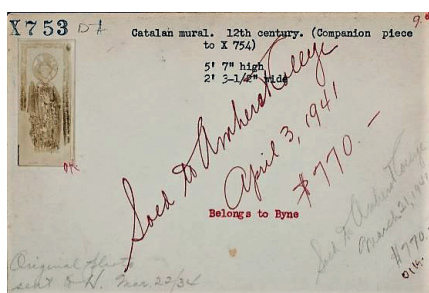 X753 D-A
9.
Catalan mural. 12th century. (Companion piece
to X 754)
5' 7" high
2' 3-1/2" wide
Sold to Amherst College
April 3, 1941
$770.—
Belongs to Byne
Sold to Amherst College
March 21, 1941
$770.—
Original photo
sent to H. Mar. 22/34